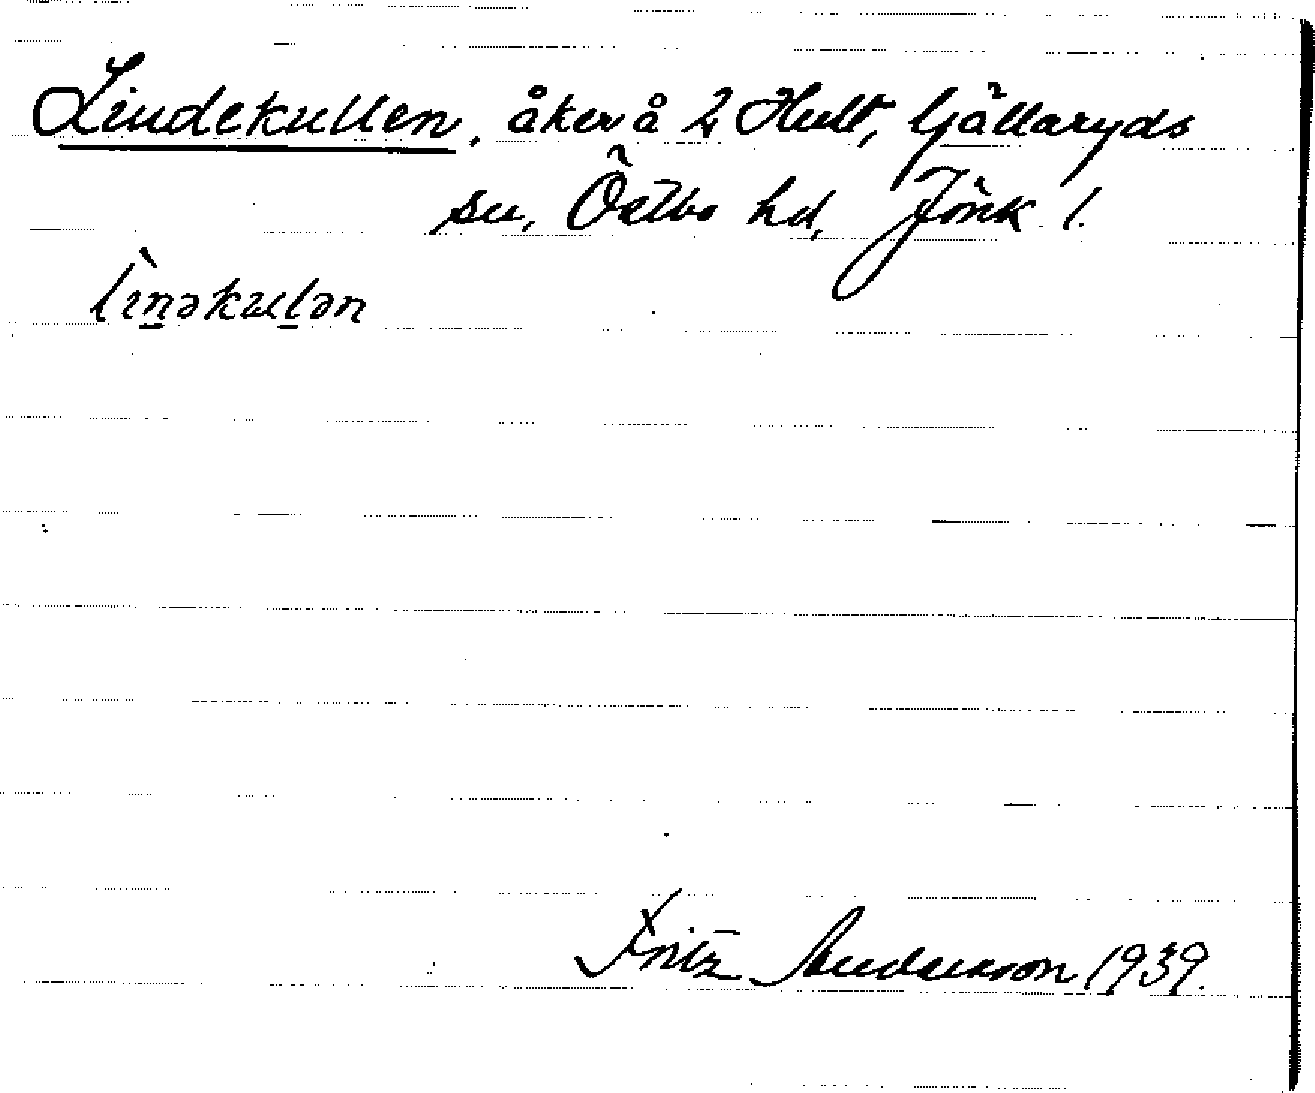 Lindekullen, åker å 2 Hult, Gällaryds
sn, Östbo hd, Jönk l.
lìn̲əkul̲ən
Fritz Anderson 1939.